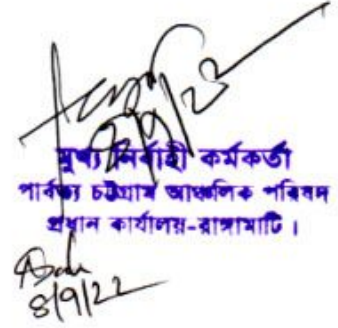 ৮/৯/২২
মুখ্য নির্বাহী কর্মকর্তা
পার্বত্য চট্টগ্রাম আঞ্চলিক পরিষদ
প্রধান কার্যালয়-রাঙ্গামাটি ।
8/9/22